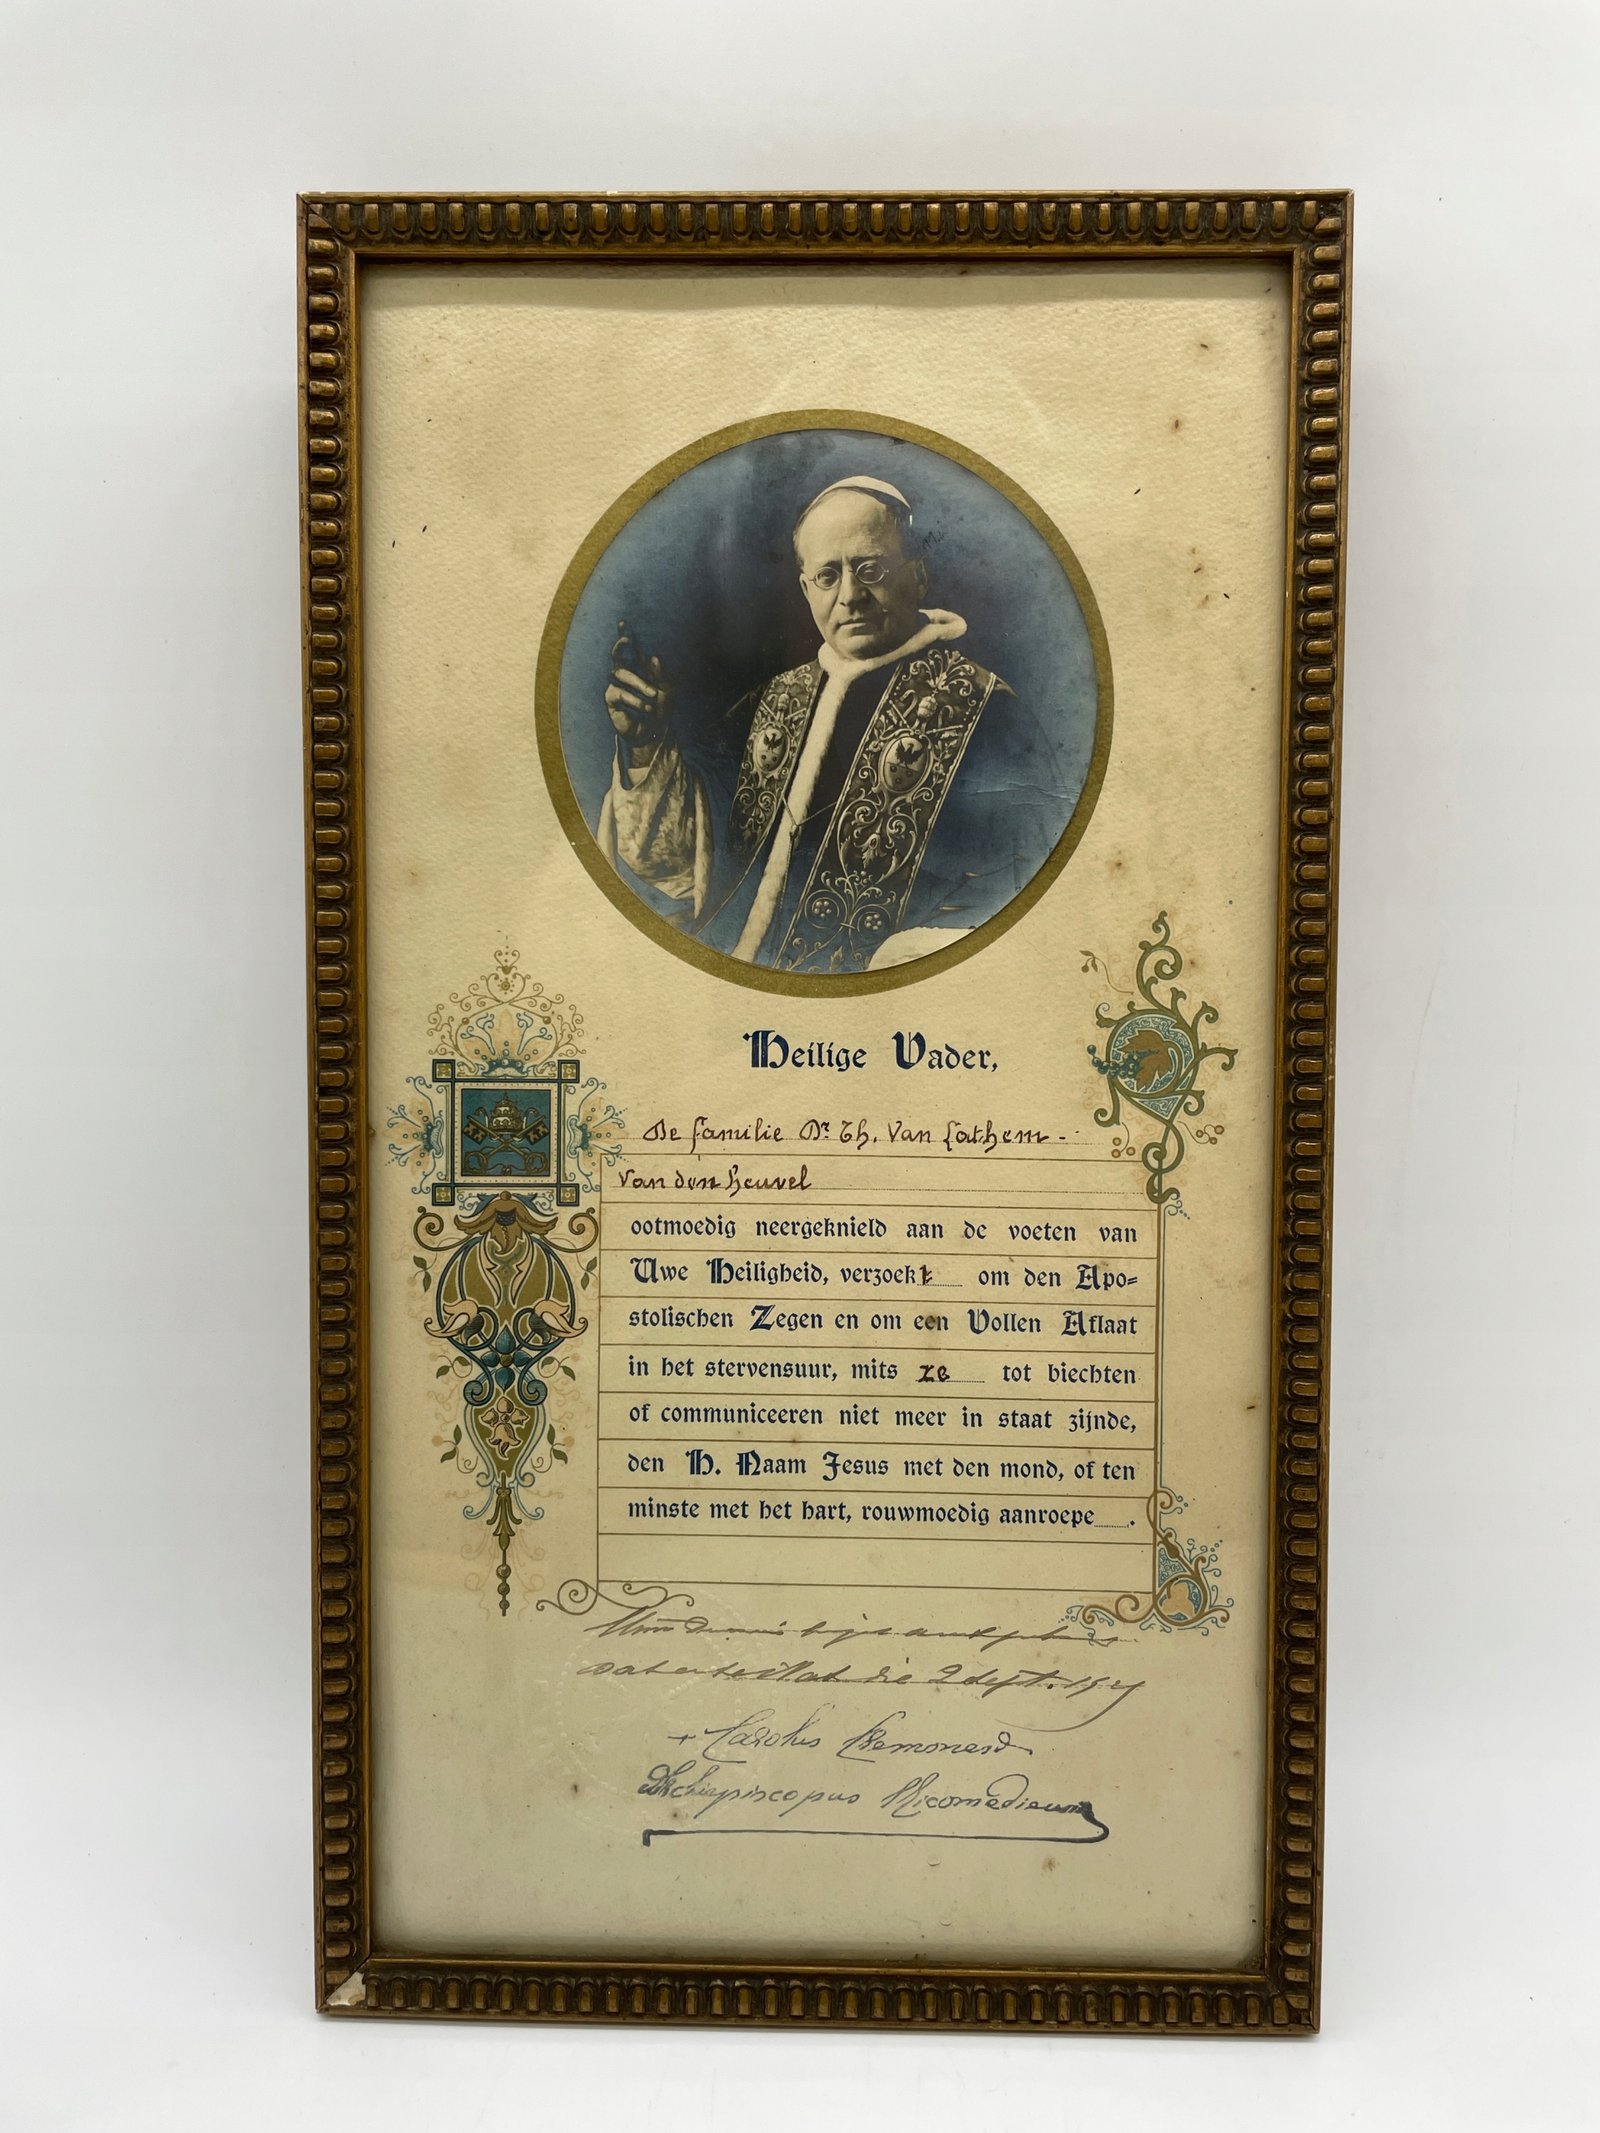 Heilige Vader,
De familie Dr Th. Van Lathem -
Van den heuvel
ootmoedig neergeknield aan de voeten van
Uwe Heiligheid, verzoekt om den Apo=
stolischen Zegen en om een Vollen Aflaat
in het stervensuur, mits ze tot biechten
of communiceeren niet meer in staat zijnde,
den H. Naam Jesus met den mond, of ten
minste met het hart, rouwmoedig aanroepe .
die 2 Sept.
+ Carolus
Archiepiscopus Nicomediensis